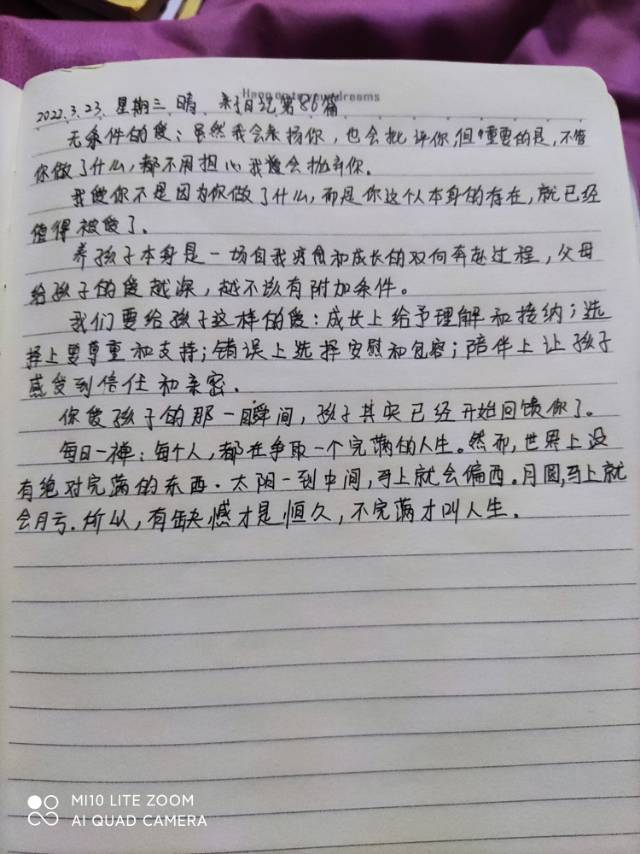 Hang on to your dreams
2022.3.23. 星期三 晴 亲日记第86篇
无条件的爱：虽然我会表扬你，也会批评你，但重要的是，不管
你做了什么，都不用担心我会抛弃你。
我爱你不是因为你做了什么，而是你这个人本身的存在，就已经
值得被爱了。
养孩子本身是一场自我疗愈和成长的双向奔赴过程，父母
给孩子的爱越深，越不该有附加条件。
我们要给孩子这样的爱：成长上给予理解和接纳；选
择上要尊重和支持；错误上选择安慰和包容；陪伴上让孩子
感受到信任和亲密．
你爱孩子的那一瞬间，孩子其实已经开始回馈你了。
每日一禅：每个人，都在争取一个完满的人生。然而，世界上没
有绝对完满的东西．太阳一到中间，马上就会偏西．月圆，马上就
会月亏．所以，有缺憾才是恒久，不完满才叫人生．
MI10 LITE ZOOM
AI QUAD CAMERA